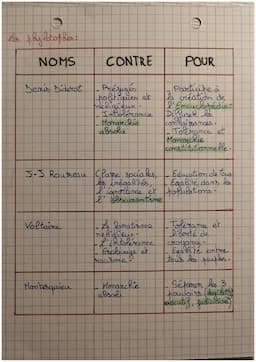 Les philosophes:
NOMS CONTRE POUR
Denis Diderot
- Préjugés
politiques et
religieux.
- Intolérance
- Monarchie
absolu
- Participe à
la création de
l'Encyclopédie:
Diffuser les
connaissances.
- Tolérance et
Monarchie
constitutionnelle
J-J Rousseau
Classe sociales,
les inégalités,
l'ignorance et
l'obscurantisme
- Education de tous
- Egalité dans les
populations.
Voltaire
- Le fanatisme
religieux.
- L'intolérance
- Esclavage et
racisme.
- Tolérance et
liberté de
croyance.
- Egalité entre
tous les peuples.
Montesquieu
- Monarchie
absolu
- Séparer les 3
pouvoirs